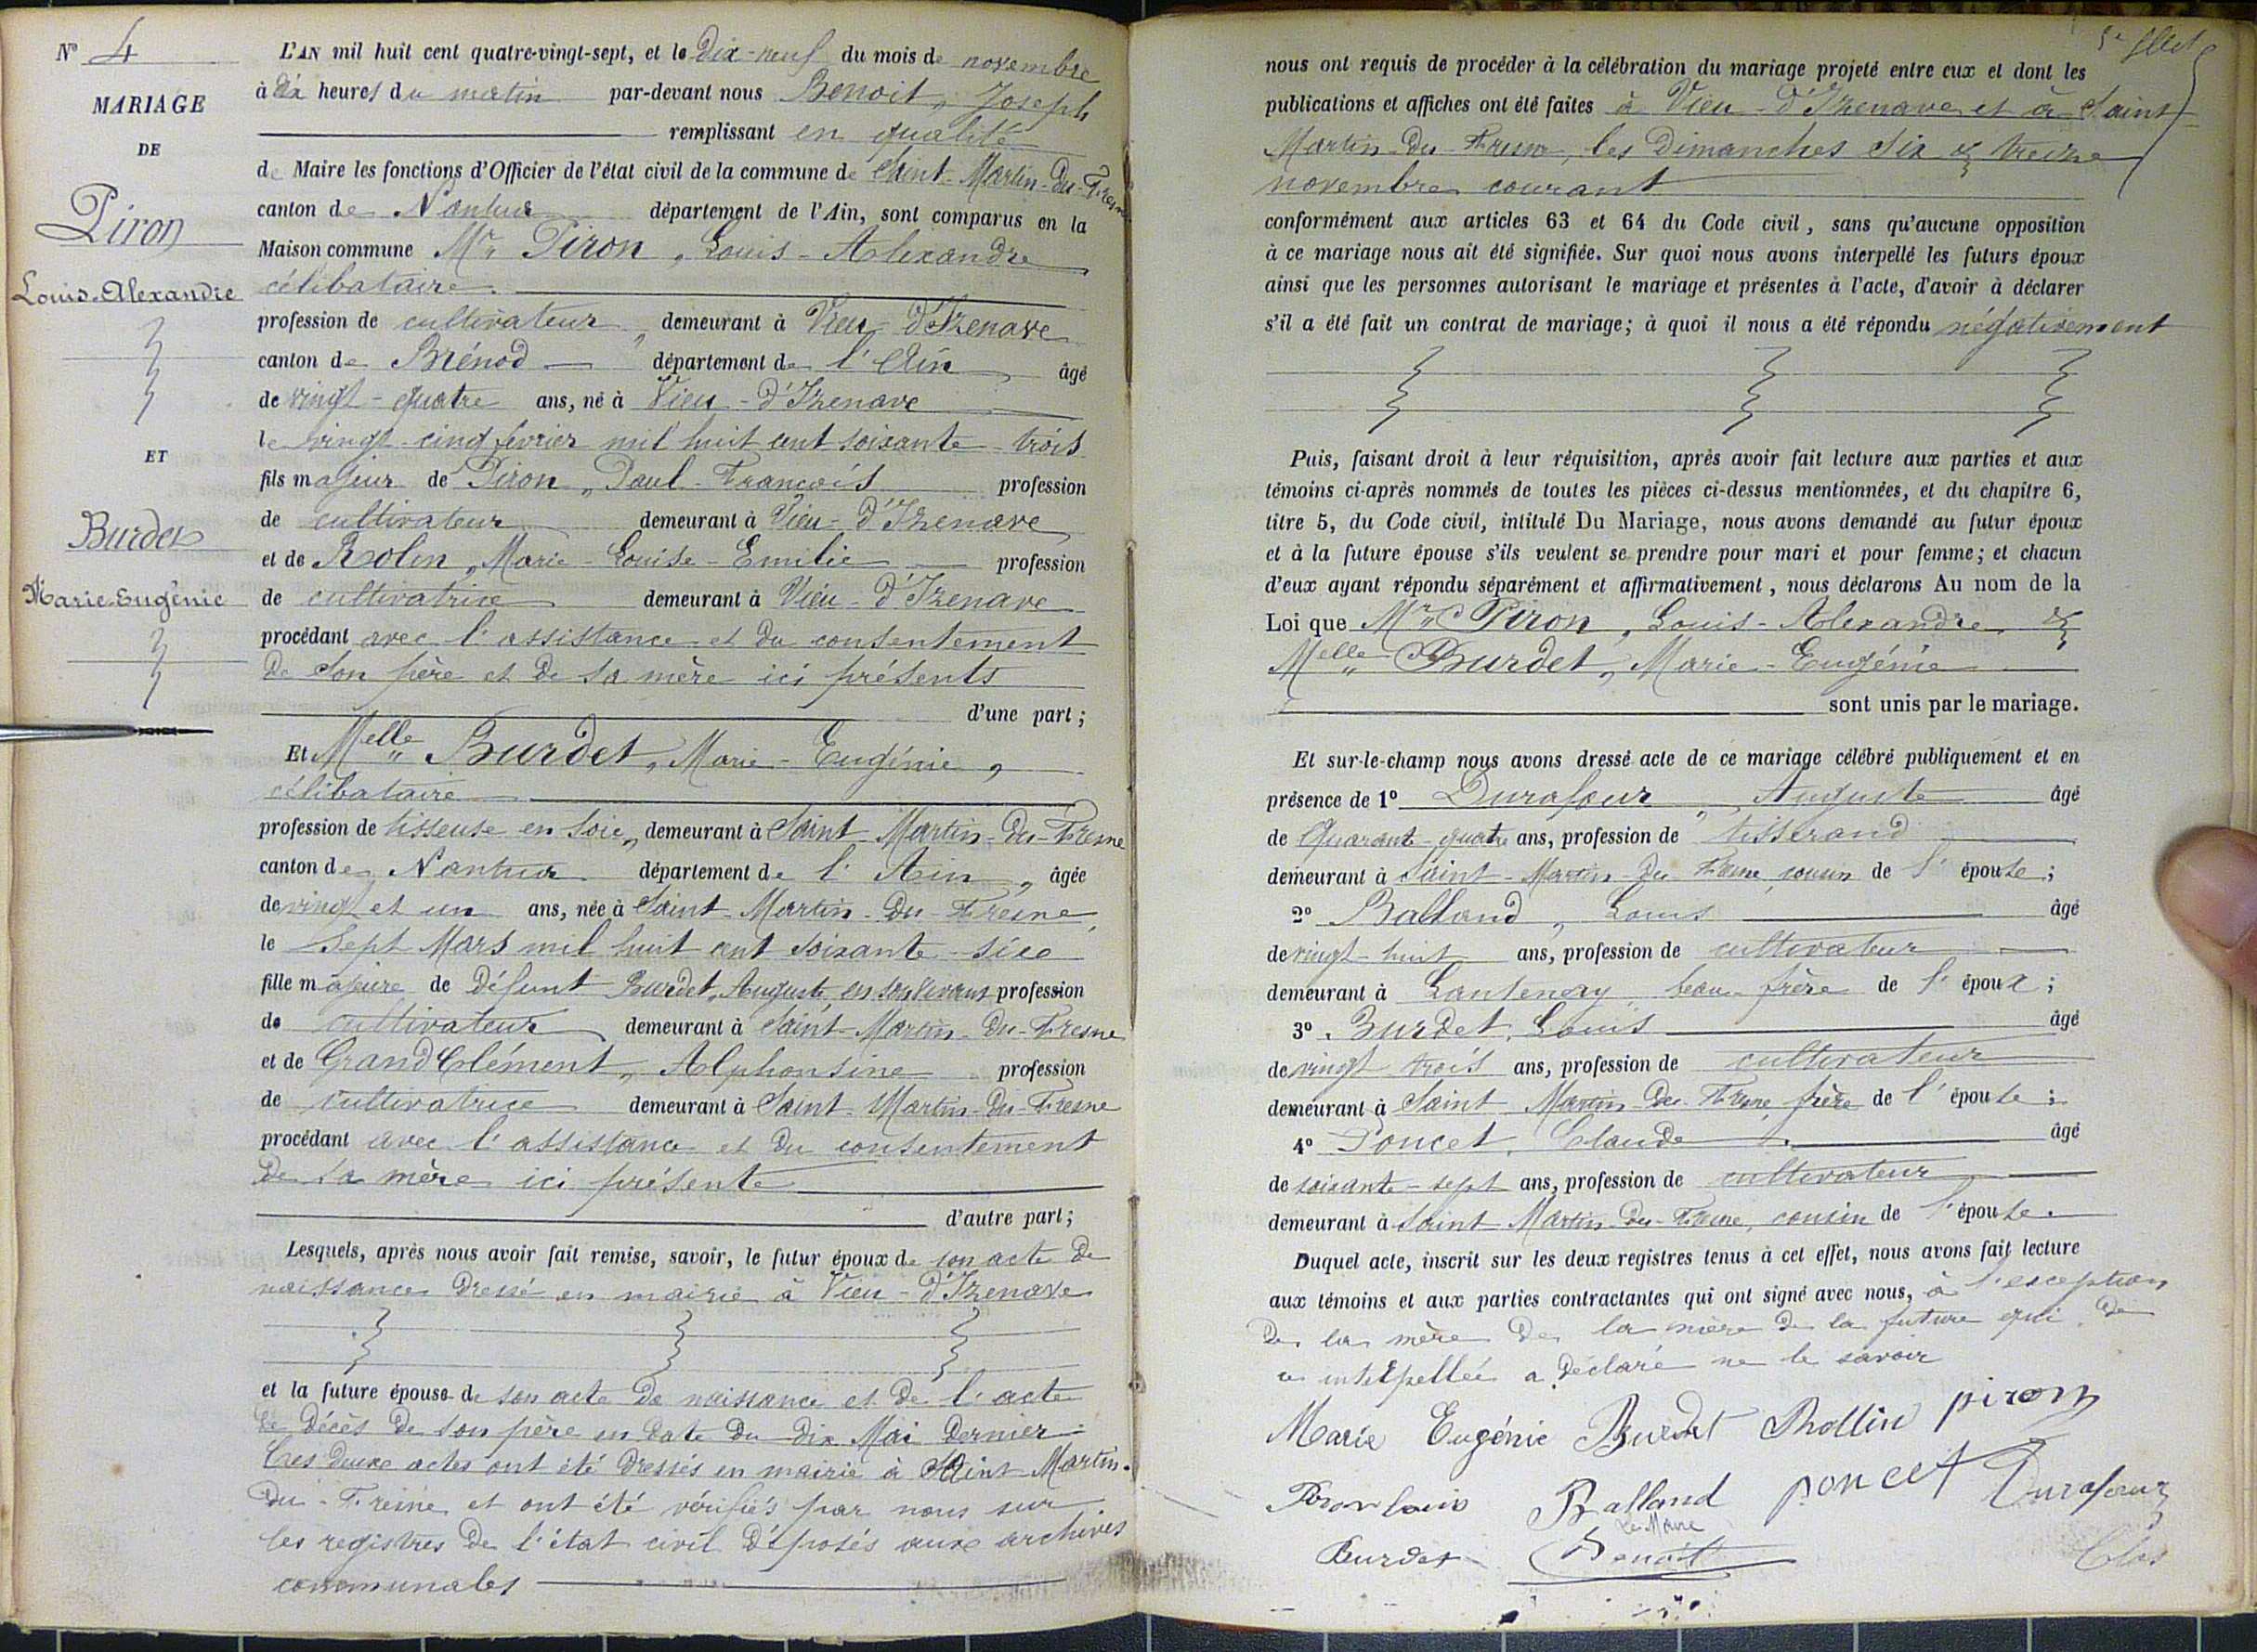 N° 4
MARIAGE
DE
Piron
Louis-Alexandre
ET
Burdet
Marie-Eugénie
L'AN mil huit cent quatre-vingt-sept, et le Dix-neuf du mois de novembre
à dix heures du matin par-devant nous Benoit, Joseph
remplissant en qualité
de Maire les fonctions d'Officier de l'état civil de la commune de Saint-Martin-du-Fresne
canton de Nantua département de l'Ain, sont comparus en la
Maison commune Mr Piron, Louis-Alexandre
célibataire.
profession de cultivateur, demeurant à Vieu-d'Izenave
canton de Brénod département de l'Ain âgé
de vingt-quatre ans, né à Vieu-d'Izenave
le vingt-cinq février mil huit cent soixante-trois
fils majeur de Piron, Paul-François profession
de cultivateur demeurant à Vieu-d'Izenave
et de Rolin, Marie-Louise-Emilie profession
de cultivatrice demeurant à Vieu-d'Izenave
procédant avec l'assistance et du consentement
de son père et de sa mère ici présents
d'une part;
Et Melle Burdet, Marie-Eugénie,
célibataire
profession de tisseuse en soie, demeurant à Saint-Martin-du-Fresne
canton de Nantua département de l'Ain, âgée
de vingt et un ans, née à Saint-Martin-du-Fresne,
le Sept Mars mil huit cent soixante-six
fille majeure de défunt Burdet, Auguste, en son vivant profession
de cultivateur demeurant à Saint-Martin-du-Fresne
et de GrandClément, Alphonsine profession
de cultivatrice demeurant à Saint-Martin-du-Fresne
procédant avec l'assistance et du consentement
de sa mère ici présente
d'autre part;
Lesquels, après nous avoir fait remise, savoir, le futur époux de son acte de
naissance dressé en mairie à Vieu-d'Izenave
et la future épouse de son acte de naissance et de l'acte
de décès de son père en date du dix Mai dernier.
Ces deux actes ont été dressés en mairie à Saint-Martin-
du-Freine et ont été vérifiés par nous sur
les registres de l'état civil déposés aux archives
communales
nous ont requis de procéder à la célébration du mariage projeté entre eux et dont les
publications et affiches ont été faites à Vieu-d'Izenave et à Saint-
Martin-du-Fresne, les Dimanches six & treize
novembre courant
conformément aux articles 63 et 64 du Code civil, sans qu'aucune opposition
à ce mariage nous ait été signifiée. Sur quoi nous avons interpellé les futurs époux
ainsi que les personnes autorisant le mariage et présentes à l'acte, d'avoir à déclarer
s'il a été fait un contrat de mariage; à quoi il nous a été répondu négativement
Puis, faisant droit à leur réquisition, après avoir fait lecture aux parties et aux
témoins ci-après nommés de toutes les pièces ci-dessus mentionnées, et du chapitre 6,
titre 5, du Code civil, intitulé Du Mariage, nous avons demandé au futur époux
et à la future épouse s'ils veulent se prendre pour mari et pour femme; et chacun
d'eux ayant répondu séparément et affirmativement, nous déclarons Au nom de la
Loi que Mr Piron, Louis-Alexandre &
Melle Burdet, Marie-Eugénie
sont unis par le mariage.
Et sur-le-champ nous avons dressé acte de ce mariage célébré publiquement et en
présence de 1° Durafour, Auguste âgé
de Quarante-quatre ans, profession de tisserand
demeurant à Saint-Martin-du-Fresne, cousin de l'épouse;
2° Balland, Louis âgé
de vingt-huit ans, profession de cultivateur
demeurant à Lantenay, beau-frère de l'époux;
3° Burdet, Louis âgé
de vingt-trois ans, profession de cultivateur
demeurant à Saint-Martin-du-Fresne, frère de l'épouse;
4° Poncet, Claude âgé
de soixante-sept ans, profession de cultivateur
demeurant à Saint-Martin-du-Fresne, cousin de l'épouse.
Duquel acte, inscrit sur les deux registres tenus à cet effet, nous avons fait lecture
aux témoins et aux parties contractantes qui ont signé avec nous, à l'exception
de la mère de la mère de la future qui de
ce interpellée a déclaré ne le savoir
Marie Eugénie Burdet Rollin piron
Piron louis Balland poncet Durafour
Le Maire
Burdet Benoit